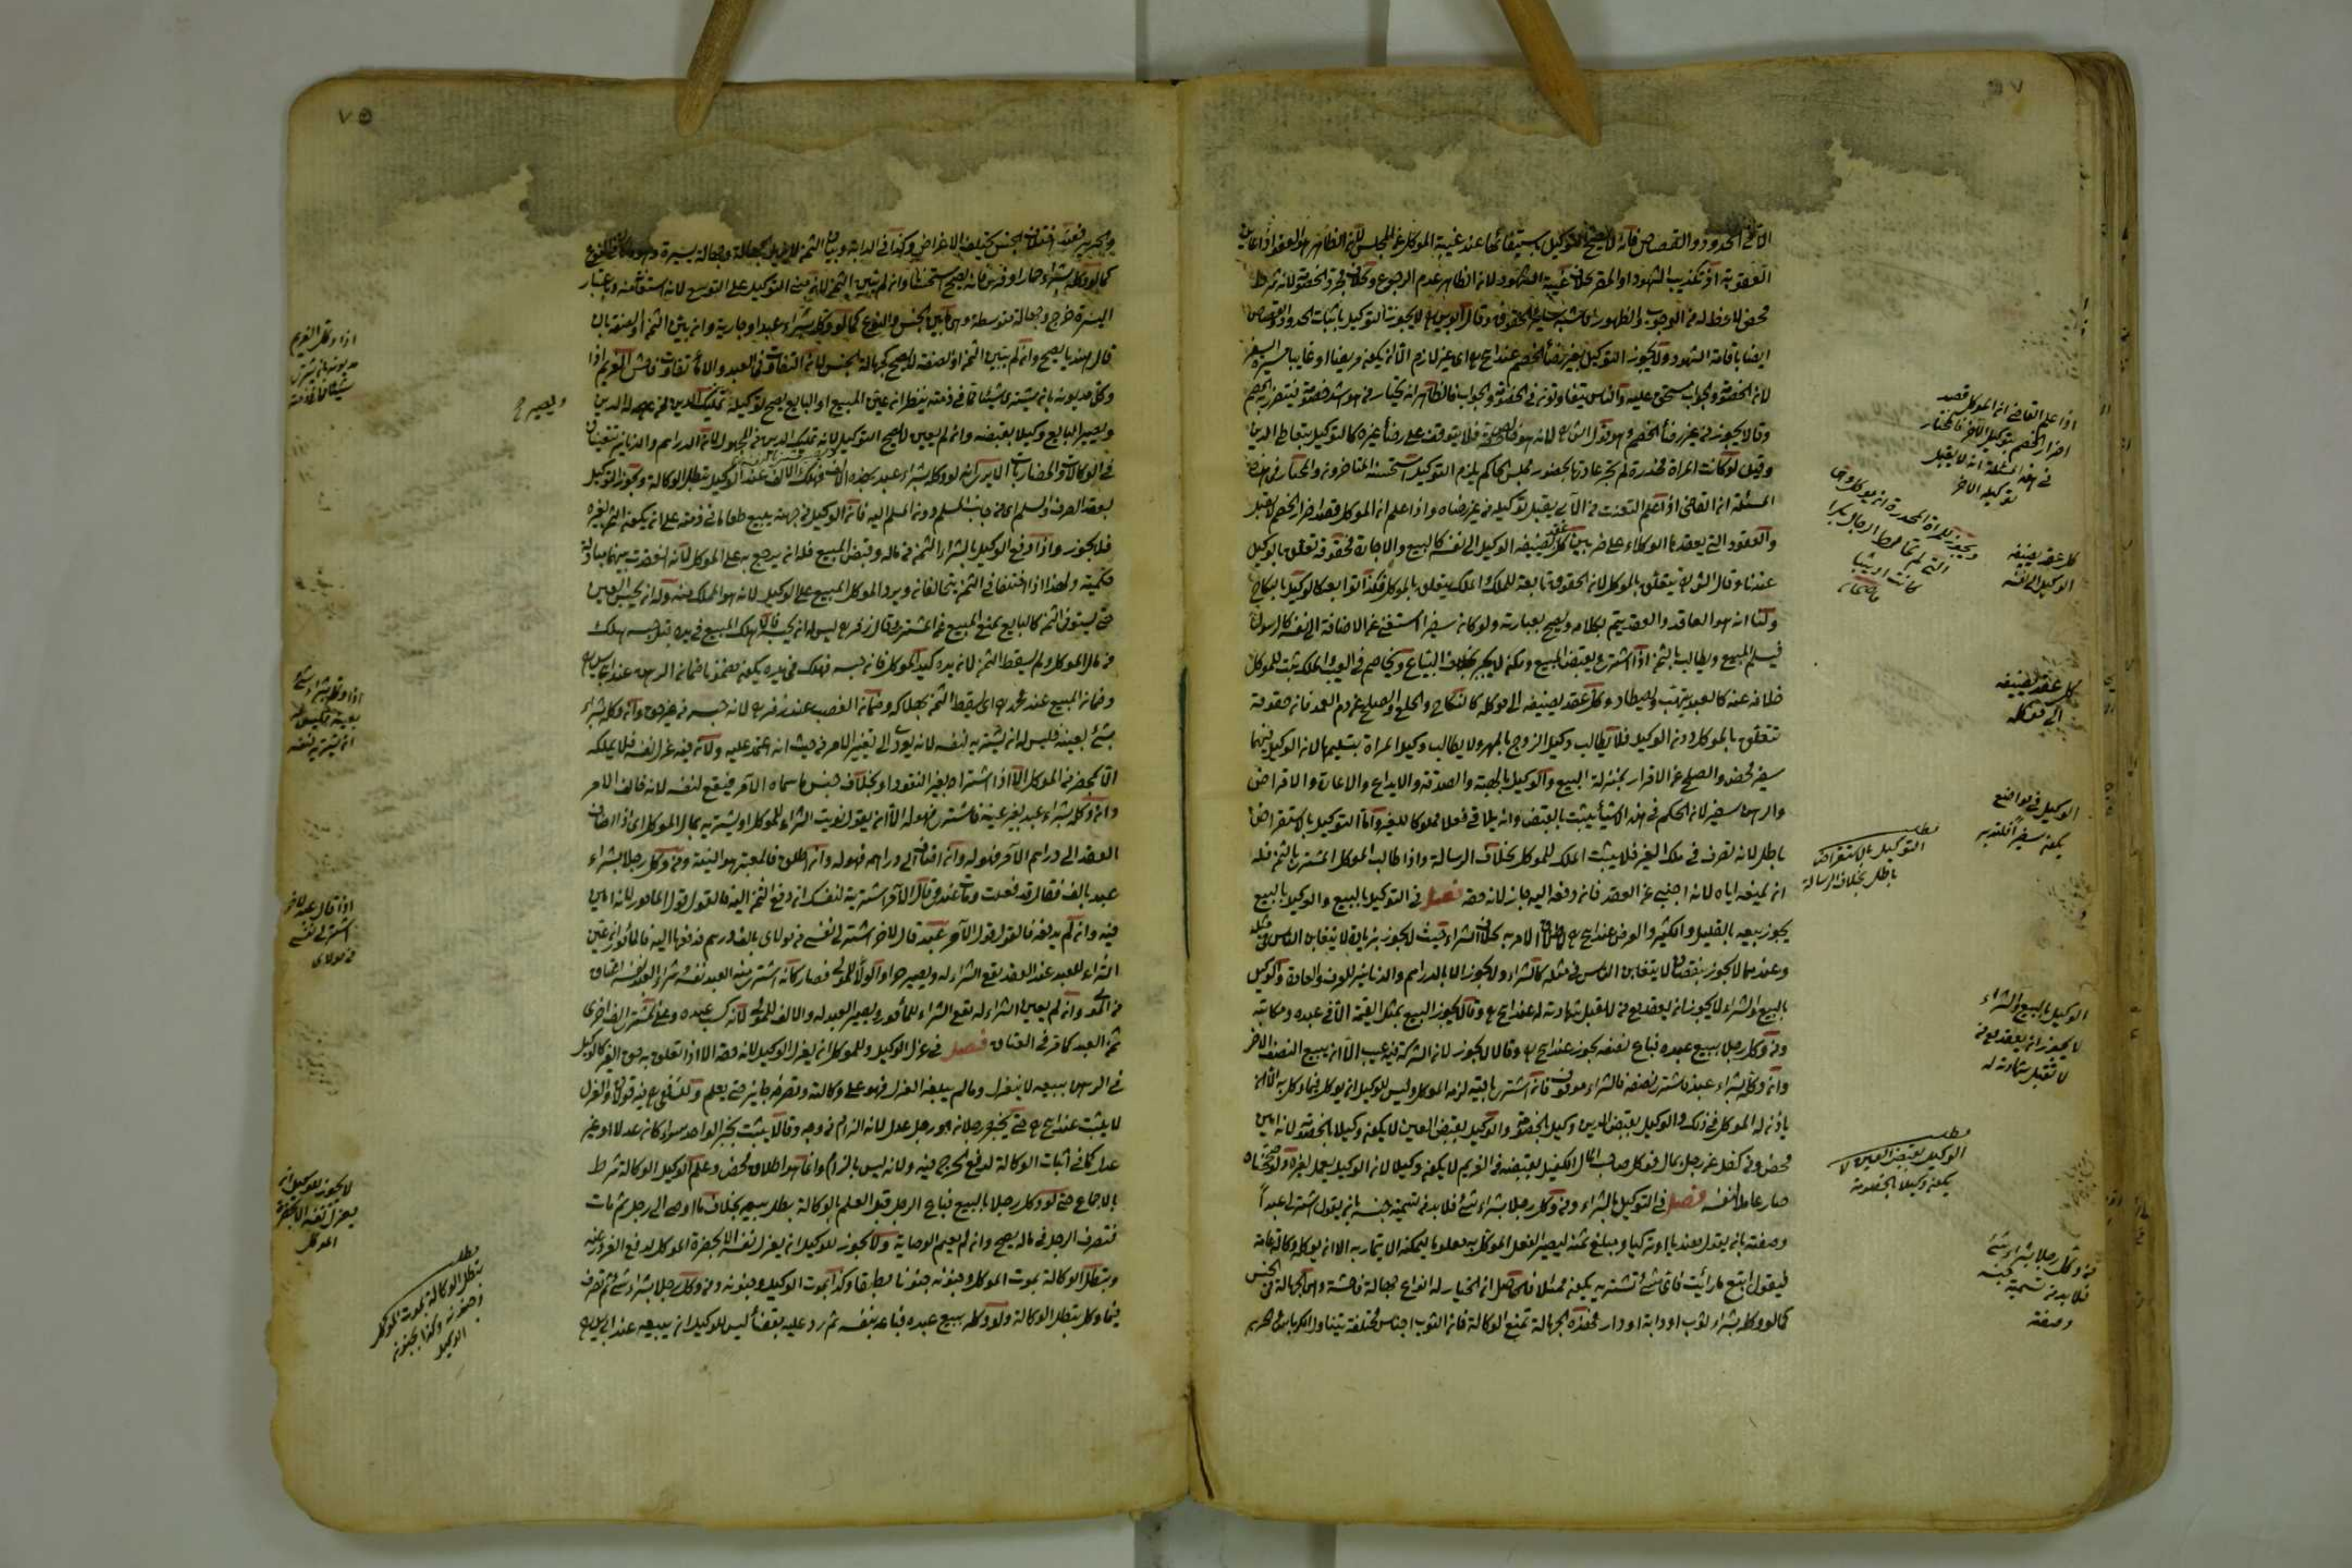 الا في الحدود والقصاص فانه لا يصح التوكيل باستيفائها عند غيبة الموكل عن المجلس لان الظاهر هو العفو اذا عاين
العقوبة او تكذيب الشهود او المقر بخلاف غيبة الشهود لان الظاهر عدم الرجوع وبخلاف مجرد الخصومة لانه شرط
محض لا حظ له في الوجوب والظهور فاشبه سائر الحقوق وقال ابو يوسف لا يجوز التوكيل باثبات الحدود والقصاص
ايضا باقامة الشهود ولا يجوز التوكيل بغير رضأ الخصم عند اي غير لازم الا ان يكون مريضا او غايبا مسيرة السفر
لان الخصومة والجواب مستحق عليه والناس يتفاوتون في الخصومة والجواب فالظاهر انه يختار من هو اشد خصومة فيتضرر به الخصم
وقالا يجوز من غير رضأ الخصم وهو قول الشافعي لانه فلا يتوقف على رضأ غيره كالتوكيل بتقاضي الديون
وقيل لو كانت المراة مخدرة لم يجر عادتها بحضور مجلس الحاكم يلزم التوكيل استحسنه المتاخرون والمختار في هذه
المسئلة ان القاضي اذا علم التعنت من الآبي يقبل توكيله من غير رضاه واذا علم ان الموكل قصد اضرار الخصم لا يقبل
والعقود التي يعقدها الوكلاء على ضربين كل عقد يضيفه الوكيل الى نفسه كالبيع والاجارة فحقوقه تتعلق بالوكيل
عندنا وقال الشافعي يتعلق بالموكل لان الحقوق تابعة للملك والملك يتعلق بالموكل فكذا توابعه كالوكيل بالنكاح
ولنا انه هو العاقد والعقد يتم بكلامه ويصح بعبارته ولو كان سفيرا استغنى عن الاضافة الى نفسه كالرسول
فيسلم المبيع ويطالب بالثمن اذا اشترى ويقبض المبيع ويخاصم في العيب والملك يثبت للموكل
خلافة عنه كالعبد يتهب ويصطاد وكل عقد يضيفه الى موكله كالنكاح والخلع والصلح عن دم العمد فان حقوقه
تتعلق بالموكل دون الوكيل فلا يطالب وكيل الزوج بالمهر ولا يطالب وكيل المراة بتسليمها لان الوكيل فيهما
سفير محض والصلح عن الاقرار بمنزلة البيع والوكيل بالهبة والصدقة والايداع والاعارة والاقراض
والرهن سفير لان الحكم في هذه الاشيأ يثبت بالقبض وانه يلاقي فعلا مملوكا للغير واما التوكيل بالاستقراض
باطل لانه تصرف في ملك الغير فلا يثبت الملك للموكل بخلاف الرسالة واذا طالب الموكل المشتري بالثمن فله
ان يمنعه اياه لانه اجنبي عن العقد فان دفعه اليه جاز لانه حقه فصل في التوكيل بالبيع والوكيل بالبيع
يجوز بيعه بالقليل والكثير والعرض عند لاطلاق الامر به بخلاف الشراء حيث لا يجوز بزيادة لا يتغابن الناس في مثله
وعندهما لا يجوز بنقصان لا يتغابن الناس في مثله كالشراء ولا يجوز الا بالدراهم والدنانير للعرف والعادة والوكيل
بالبيع والشراء لا يجوز ان يعقد مع من لا تقبل شهادته له عند وقالا يجوز البيع بمثل القيمة الا في عبده ومكاتبه
ومن وكل رجلا ببيع عبده فباع نصفه يجوز عند وقالا لا يجوز لان الشركة فيه عيب الا ان يبيع النصف الاخر
وان وكله بشراء عبد فاشترى نصفه فالشراء موقوف فان اشترى باقيه لزم الموكل وليس للوكيل ان يوكل فيما وكل به الا ان
ياذن له الموكل في ذلك والوكيل بقبض الدين وكيل بالخصومة والوكيل بقبض العين لا يكون وكيلا بالخصومة لانه امين
محض ومن كفل عن رجل بمال فوكل صاحب المال الكفيل بقبضه من الغريم لا يكون وكيلا لان الوكيل يعمل لغيره ولو صححناه
صار عاملا لنفسه فصل في التوكيل بالشراء ومن وكل رجلا بشراء شئ فلا بد من تسمية جنسه بان يقول اشتر لي عبدا
وصفته بان يقول هنديا او تركيا ومبلغ ثمنه ليصير الفعل الموكل به معلوما ليمكنه الايتمار به الا ان يوكله وكالة عامة
فيقول ابتع ما رأيت فاي شئ تشتريه يكون ممتثلا فالحاصل ان الجهالة فاحشة وهي الجهالة في الجنس
كما لو وكله بشراء ثوب او دابة او دار فهذه الجهالة تمنع الوكالة فان الثوب اجناس مختلفة يتناول الكرباس
اذا علم القاضي ان الموكل قصد
اضرار الخصم بتوكيل الاخر فالمختار
في هذه المسئلة ان لا يقبل
توكيله الاخر
ويجوز للمراة المخدرة ان يوكل وهي
التي لم تخالط الرجال بكرا
كانت او ثيبا
كل عقد يضيفه
الوكيل الى نفسه
كل عقد يضيفه
الى موكله
الوكيل في مواضع
يكون سفيرا
مطلب
التوكيل بالاستقراض
باطل بخلاف الرسالة
الوكيل بالبيع والشراء
لا يجوز ان يعقد مع من
لا تقبل شهادته له
مطلب
الوكيل بقبض العين لا
يكون وكيلا بالخصومة
من وكل رجلا بشراء شئ
فلا بد من تسمية جنسه
وصفته
٧٥
والحرير فعند اختلاف الجنس يختلف الاغراض وكذا في الدابة وبيان الثمن لا يزيل الجهالة وجهالة يسيرة وهي في النوع
كما لو وكله بشراء حمار او فرس فانه يصح استحسانا وان لم يبين الثمن لان مبنى التوكيل على التوسع لانه استعانة وفي اعتبار
اليسيرة حرج وجهالة متوسطة وهي بين الجنس والنوع كما لو وكله بشراء عبد او جارية وان بين الثمن او الصفة بان
قال هنديا يصح وان لم يبين الثمن او الصفة لا يصح لجهالة الجنس لان التفاوت في العبد والاماء تفاوت فاحش الغريم اذا
وكل مديونه بان يشتري شيئا بما في ذمته ينظر ان عين المبيع او البايع يصح توكيله
ويصير البايع وكيلا بقبضه وان لم يعين لا يصح التوكيل لانه تمليك الدين من المجهول لان الدراهم والدنانير تتعينان
في الوكالات والمضاربات الا يرى انه لو وكله بشراء عبد بهذه الالف فهلك الالف عند الوكيل تبطل الوكالة ويجوز التوكيل
بعقد الصرف والسلم اي من جانب المسلم دون المسلم اليه فان التوكيل من جهته يبيع طعاما في ذمته على ان يكون الثمن لغيره
فلا يجوز واذا دفع الوكيل بالشراء الثمن من ماله وقبض المبيع فله ان يرجع به على الموكل لانه انعقدت بينهما مبادلة
حكمية ولهذا اذا اختلفا في الثمن يتحالفان ويرد الموكل المبيع على الوكيل لانه هو المملك منه وله ان يحبس العين
حتى يستوفي الثمن كالبايع يمنع المبيع عن المشتري وقال زفر ليس له ان يحبسه فان هلك المبيع في يده قبل حبسه هلك
من مال الموكل ولم يسقط الثمن لان يده كيد الموكل فان حبسه فهلك في يده يكون مضمونا ضمان الرهن عند ابي يوسف
وضمان المبيع عند محمد اي يسقط الثمن بهلاكه وضمان الغصب عند زفر لانه حبسه من غير حق وان وكل بشراء
شئ بعينه فليس له ان يشتريه لنفسه لانه يؤدي الى تغرير الامر من حيث انه اعتمد عليه ولان فيه عزل نفسه فلا يملكه
الا بمحضر من الموكل الا اذا اشتراه بغير النقود او بخلاف جنس ما سماه الآمر فيقع لنفسه لانه خالف الامر
وان وكله بشراء عبد بغير عينه فاشترى فهو له الا ان يقول نويت الشراء للموكل او يشتريه بمال الموكل اي اذا اضاف
العقد الى دراهم الآمر فهو له وان اضاف الى دراهمه فهو له وان اطلق فالمعتبر هو النية ومن وكل رجلا بشراء
عبد بالف فقال قد فعلت ومات عندي وقال الآمر اشتريته لنفسك ان دفع الثمن اليه فالقول قول المامور لانه امين
فيه وان لم يدفعه فالقول قول الآمر عبد قال لاخر اشتر لي نفسي من مولاي بالف درهم فدفعها اليه فالمأمور ان عين
الشراء للعبد عند العقد يقع الشراء له ويصير حرا والولاء للمولى فصار كانه اشترى منه العبد نفسه وشراء العبد نفسه اعتاق
من المولى وان لم يعين الشراء له تقع الشراء للمأمور ويصير العبد له والالف للمولى لانه كسب عبده وعلى المشتري الف اخرى
ثمن العبد كما مر في العتاق فصل في عزل الوكيل وللموكل ان يعزل الوكيل لانه حقه الا اذا تعلق به حق الغير كالوكيل
في الرهن ببيعه لا ينعزل وما لم يبلغه العزل فهو على وكالته وتصرفه جايز حتى يعلم وللشافعي فيه قولان والعزل
لا يثبت عند حتى يخبره رجلان او رجل عدل لانه الزام من وجه وقالا يثبت بخبر الواحد سواء كان عدلا او غير
عدل كما في اثبات الوكالة لدفع الحرج فيه ولانه ليس بالزام وانما هو اطلاق محض وعلم الوكيل الوكالة شرط
بالاجماع حتى لو وكل رجلا بالبيع فباع الرجل قبل العلم بالوكالة بطل بيعه بخلاف ما اوصى الى رجل ثم مات
فتصرف الرجل في ماله يصح وان لم يعلم الوصاية ولا يجوز للوكيل ان يعزل نفسه الا بحضرة الموكل لدفع الغرور عنه
وتبطل الوكالة بموت الموكل وجنونه جنونا مطبقا وكذا بموت الوكيل وجنونه ومن وكل رجلا بشراء شئ ثم تصرف
فيما وكل تبطل الوكالة ولو وكله ببيع عبده فباعه بنفسه ثم رد عليه بقضأ ليس للوكيل ان يبيعه عند ابي يوسف
اذا وكل الغريم
مديونه بان يشتري
شيئا بما في ذمته
ويصير
اذا وكل بشراء شئ
بعينه فليس له
ان يشتريه لنفسه
اذا قال عبد لاخر
اشتر لي نفسي
من مولاي
لا يجوز للوكيل ان
يعزل نفسه الا بحضرة
الموكل
مطلب
تبطل الوكالة بموت الموكل
وجنونه وكذا بجنون
الوكيل